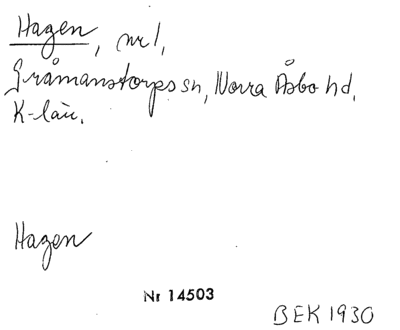 Hagen, nr 1,
Gråmanstorps sn, Norra Åsbo hd.
K-län.
Hagen
Nr 14503
BEK 1930